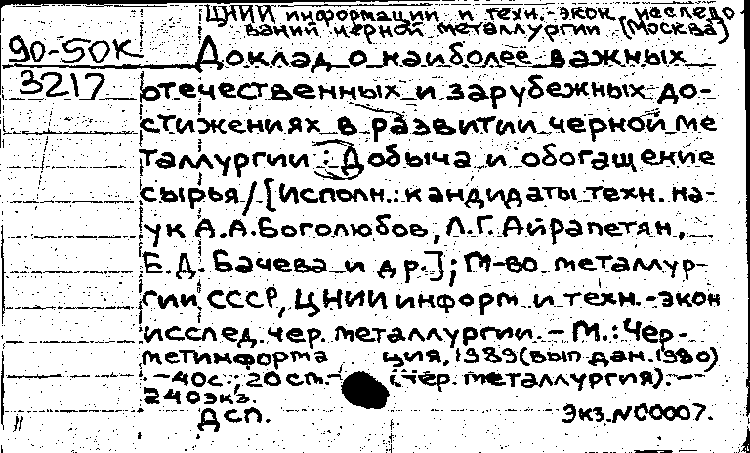 ЦНИИ информации и техн.-экон. исследо
ваний черной металлургии (Москва)
90-50К
Доклад о наиболее важных
3217
отечественных и зарубежных до-
стижениях в развитии черной ме
таллургии : Добыча и обогащение
сырья / [Исполн.: кандидаты техн. на-
ук А.А. Боголюбов, Л.Г. Айрапетян,
Е.Д. Бачева и др.]; М-во металлур-
гии СССР, ЦНИИ информ. и техн.-экон
исслед. чер. металлургии. - М.: Чер-
метинформация, 1989 (вып. дан. 1990)
. - 40с.; 20 см. - (Чер. металлургия). -
240 экз.
ДСП.
Экз. N00007.